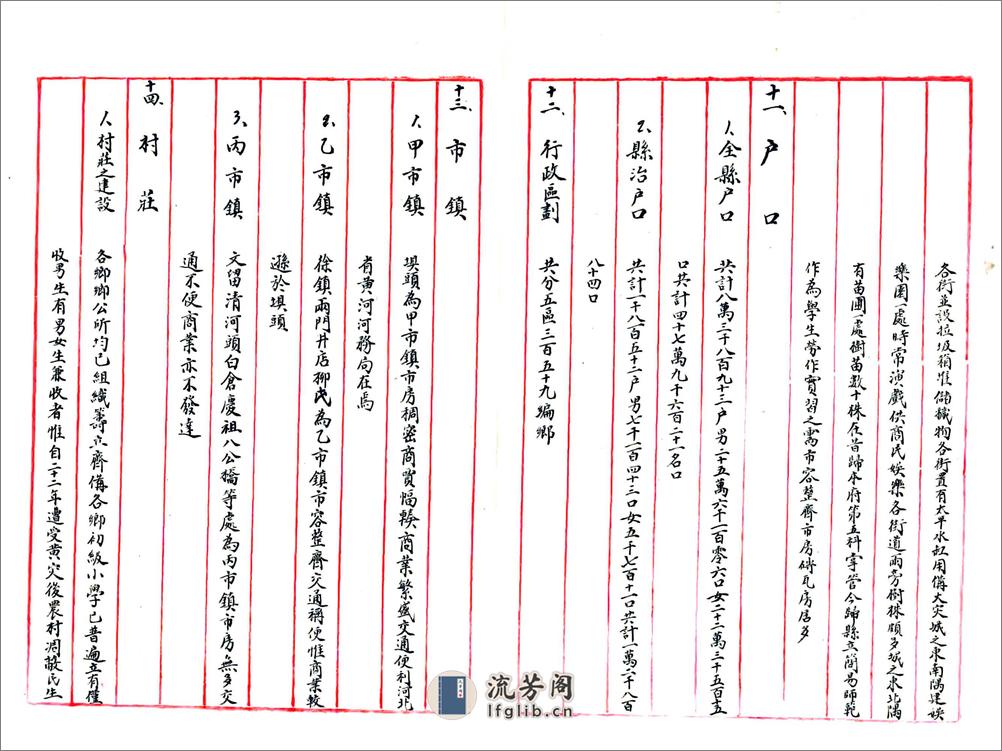 各街並設垃圾箱堆儲穢物各街置有太平水缸用備火災城之東南隅建娛
樂園一處時常演戲供商民娛樂各街道兩旁樹株頗多城之東北隅
有苗圃一處樹苗数十株在昔歸本府第五科掌管今歸縣立簡易師範
作為學生勞作實習之寓市容整齊市房磚瓦房居多
十一、户口
1.全縣户口 共計八萬三千八百九十三户男二十五萬六千一百零六口女二十二萬三千五百十五
口共計四十七萬九千六百二十一名口
2.縣治户口 共計一千八百五十二户男七千一百四十三口女五千七百十一口共計一萬二千八百
八十四口
十二、行政區劃 共分五區三百五十九編鄉
十三、市鎮
1.甲市鎮 壩頭為甲市鎮市房稠密商賈輻輳商業繁盛交通便利河北
省黄河河務局在焉
2.乙市鎮 徐鎮兩門井店柳屯為乙市鎮市容整齊交通稱便惟商業較
遜於壩頭
3.丙市鎮 文留清河頭白倉慶祖八公橋等處為丙市鎮市房無多交
通不便商業亦不發達
十四、村莊
1.村莊之建設 各鄉鄉公所均已組織籌立齊備各鄉初級小學已普遍立有僅
收男生有男女生兼收者惟自二十二年遭受黄災後農村凋敝民生
流芳阁
lfglib.cn